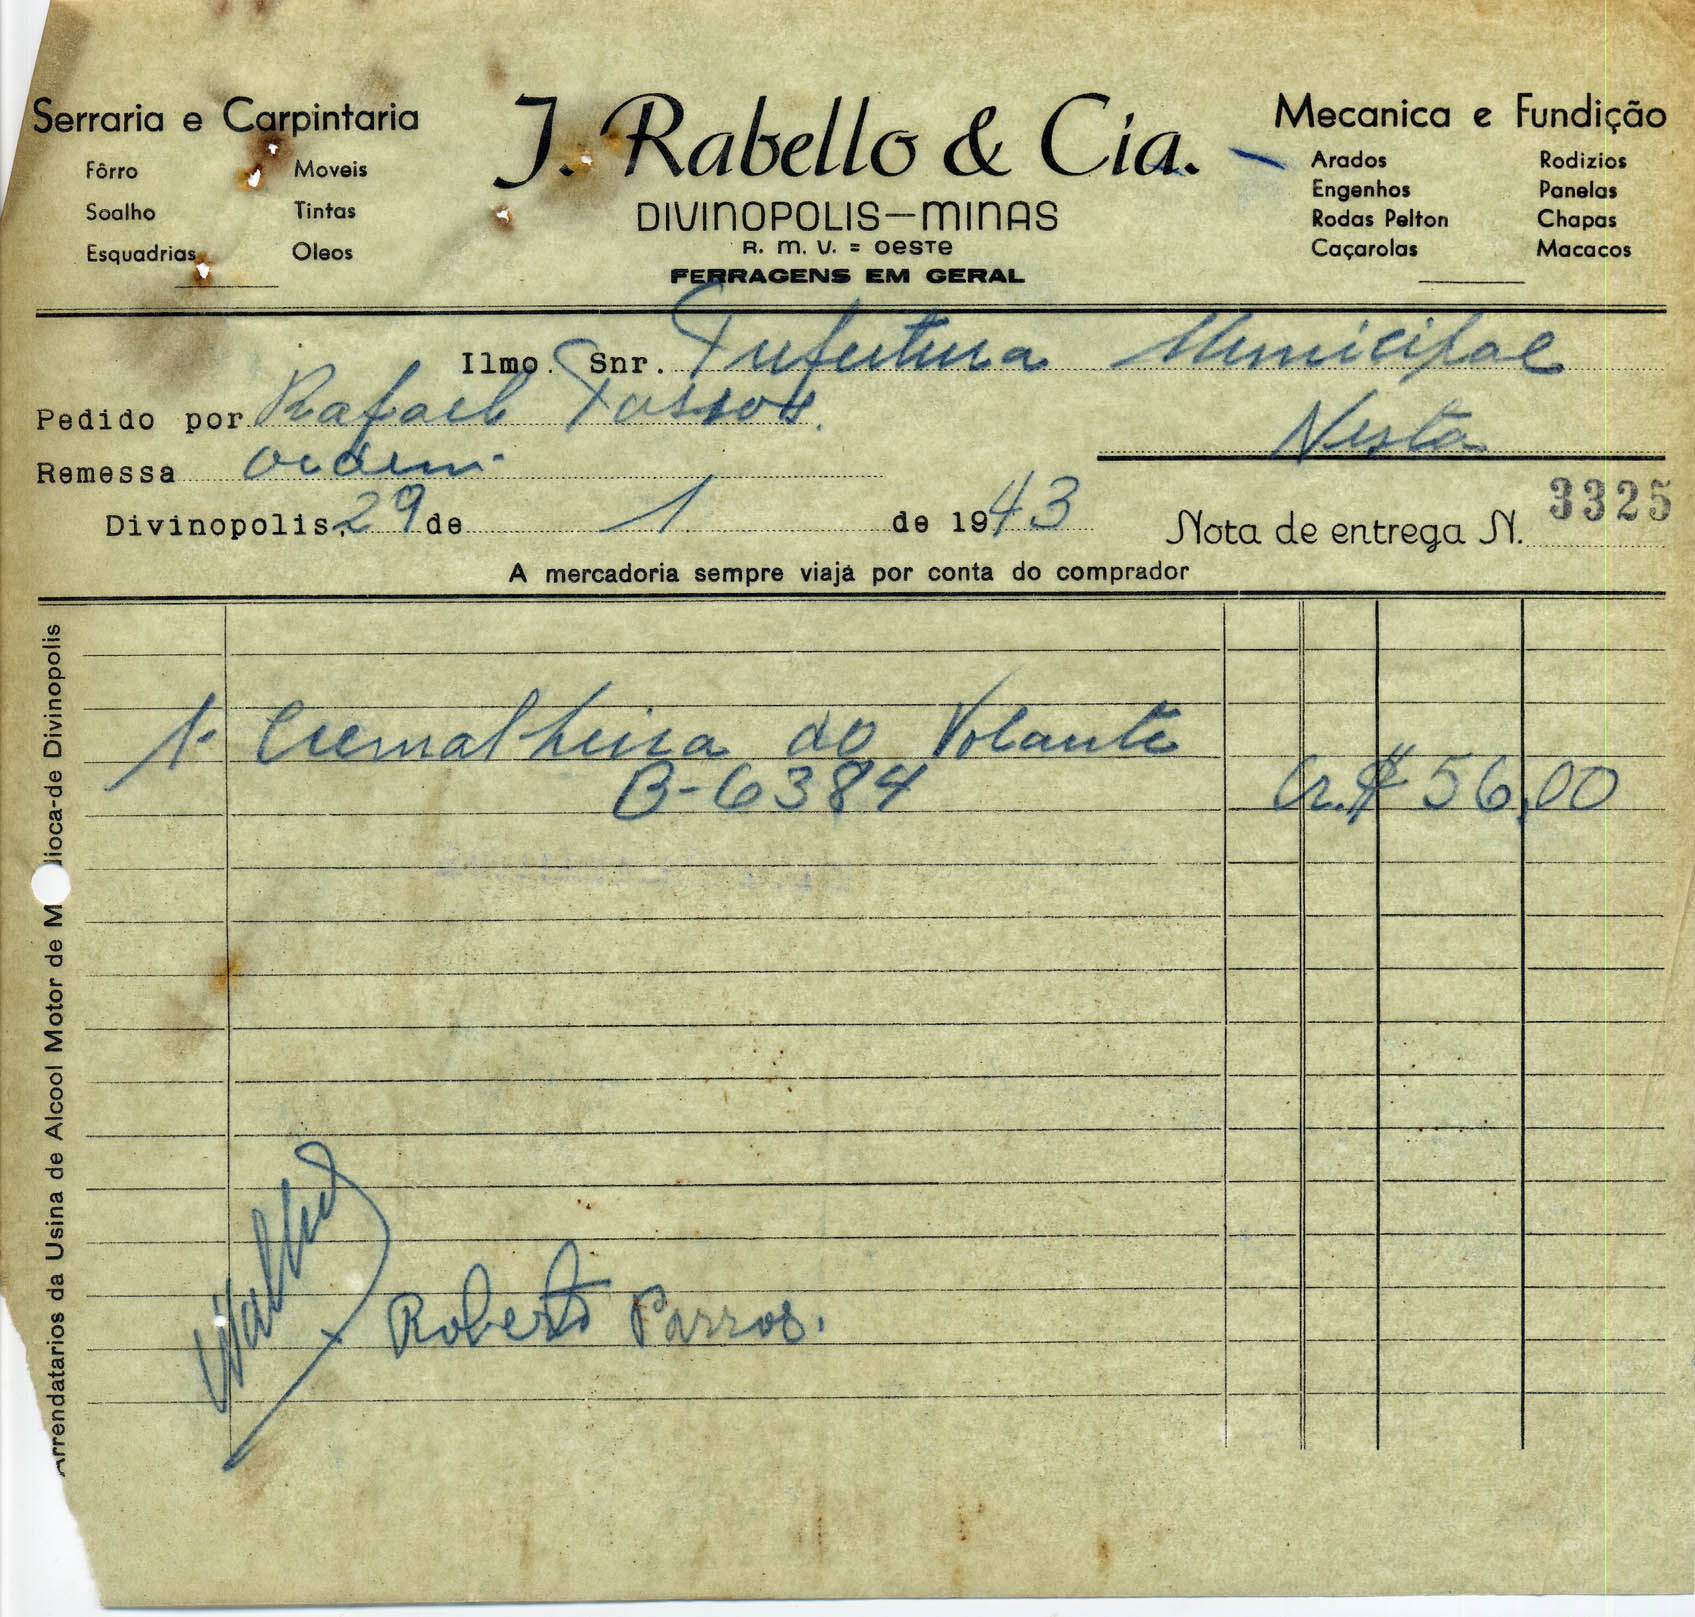 Serraria e Carpintaria
Fôrro Moveis
Soalho Tintas
Esquadrias Oleos
J. Rabello & Cia.
DIVINOPOLIS—MINAS
R. M. V. = OESTE
FERRAGENS EM GERAL
Mecanica e Fundição
Arados Rodizios
Engenhos Panelas
Rodas Pelton Chapas
Caçarolas Macacos
Ilmo. Snr. Prefeitura Municipal
Pedido por Rafael Passos.
Nesta
Remessa ordem
Divinopolis, 29 de 1 de 1943
Nota de entrega N. 3325
A mercadoria sempre viaja por conta do comprador
1- Cremalheira do Volante
B-6384 Cr.$ 56,00
Roberto Parros.
Arrendatarios da Usina de Alcool Motor de M ioca-de Divinopolis